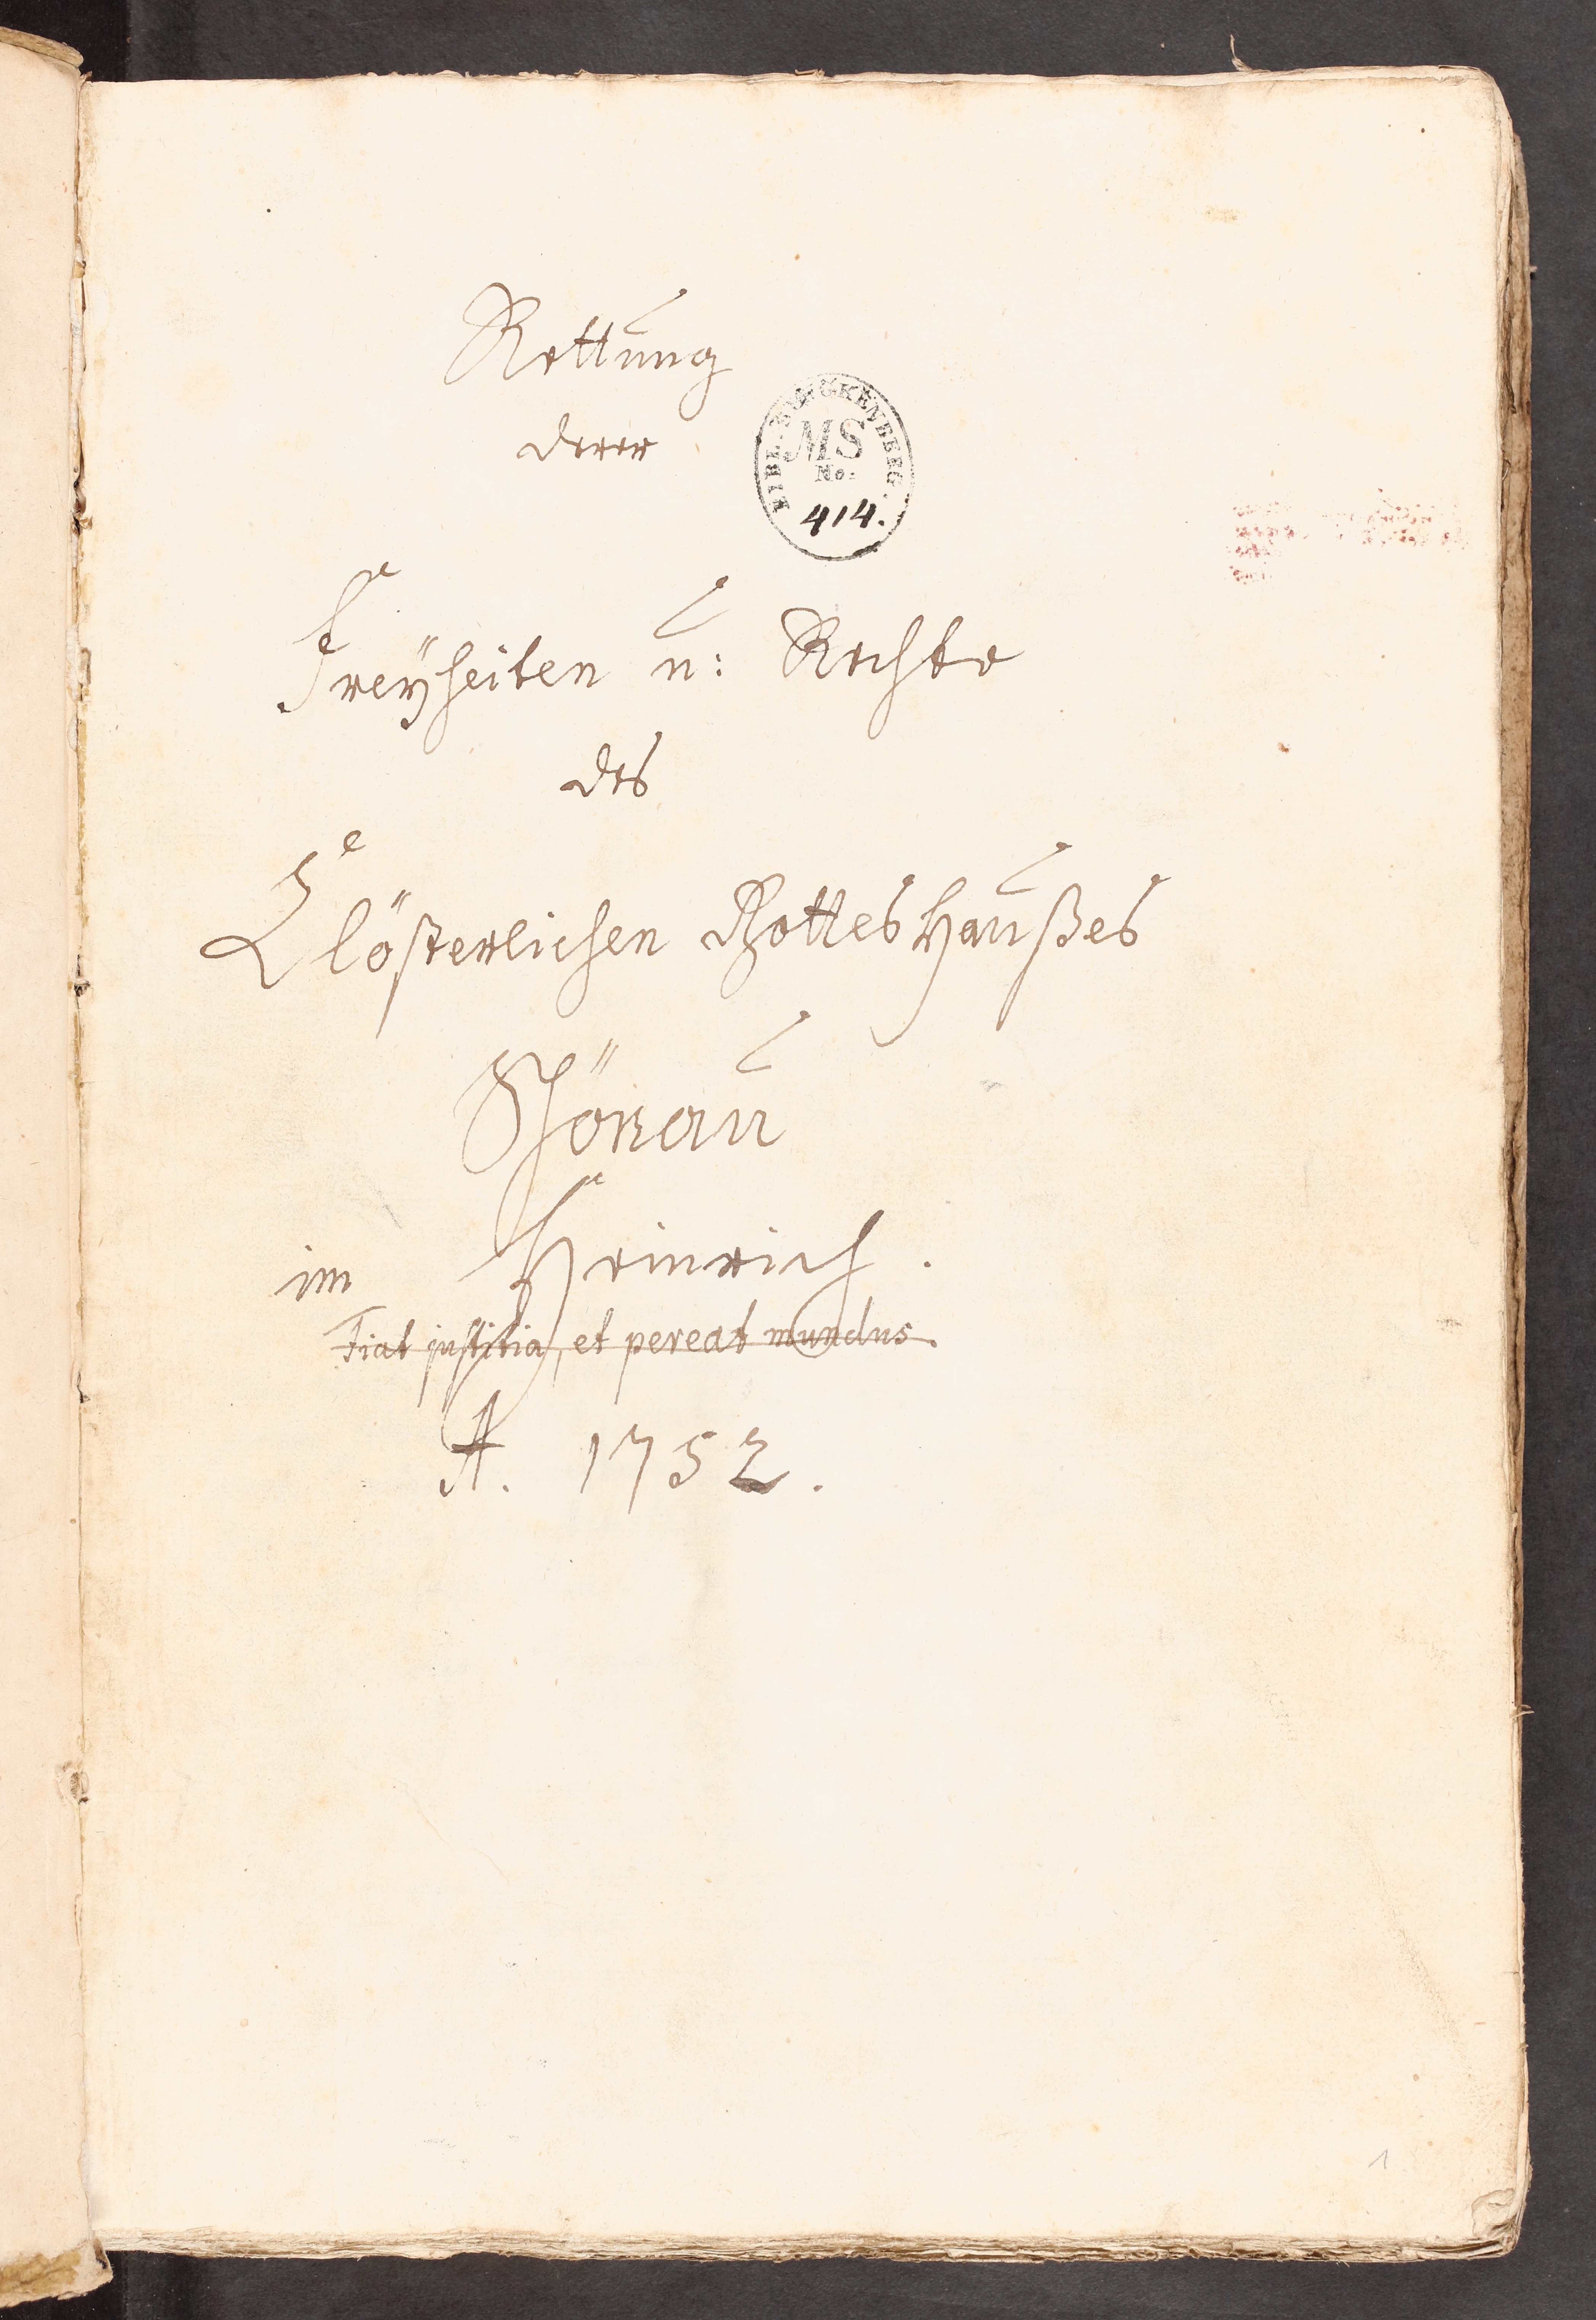 Rettung
derer
BIBL. SENCKENBERG.
MS
No.
414.
Freÿheiten u: Rechte
des
Clösterlichen Gotteshaußes
Schönau
im Heinrich.
Fiat justitia, et pereat mundus.
A. 1752.
1